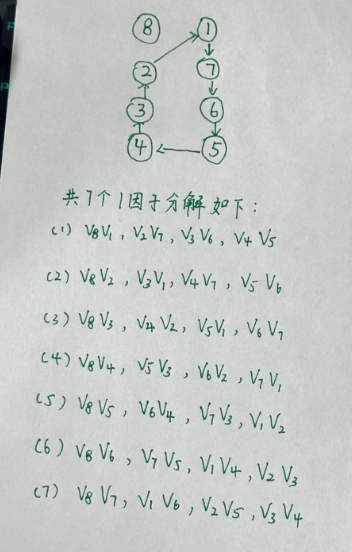 8 1
2 7
3 6
4 5
共7个1因子分解如下:
(1) V₈V₁, V₂V₇, V₃V₆, V₄V₅
(2) V₈V₂, V₃V₁, V₄V₇, V₅V₆
(3) V₈V₃, V₄V₂, V₅V₁, V₆V₇
(4) V₈V₄, V₅V₃, V₆V₂, V₇V₁
(5) V₈V₅, V₆V₄, V₇V₃, V₁V₂
(6) V₈V₆, V₇V₅, V₁V₄, V₂V₃
(7) V₈V₇, V₁V₆, V₂V₅, V₃V₄